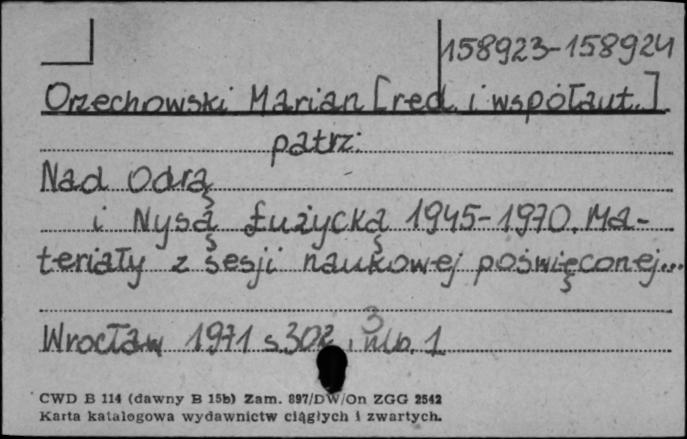 158923-158924
Orzechowski Marian [red. i współaut.]
patrz:
Nad Odrą
i Nysą Łużycką 1945-1970. Ma-
teriały z sesji naukowej poświęconej...
3
Wrocław 1971 s. 302, nlb. 1
CWD B 114 (dawny B 15b) Zam. 897/DW/On ZGG 2542
Karta katalogowa wydawnictw ciągłych i zwartych.